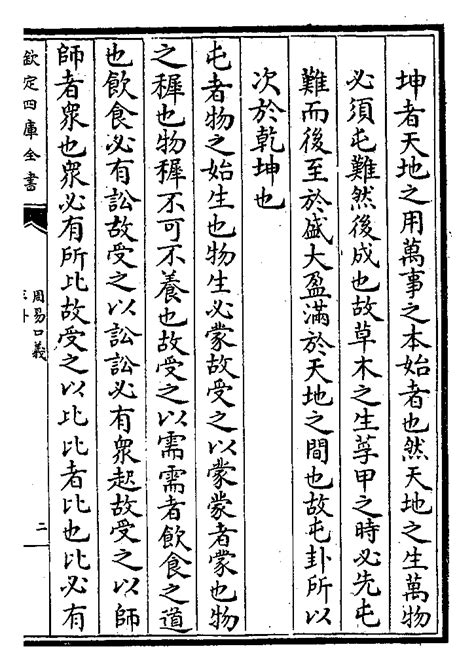 坤者天地之用萬事之本始者也然天地之生萬物
必須屯難然後成也故草木之生莩甲之時必先屯
難而後至於盛大盈滿於天地之間也故屯卦所以
次於乾坤也
屯者物之始生也物生必蒙故受之以蒙蒙者蒙也物
之穉也物穉不可不養也故受之以需需者飲食之道
也飲食必有訟故受之以訟訟必有衆起故受之以師
師者衆也衆必有所比故受之以比比者比也比必有
欽定四庫全書
周易口義
二